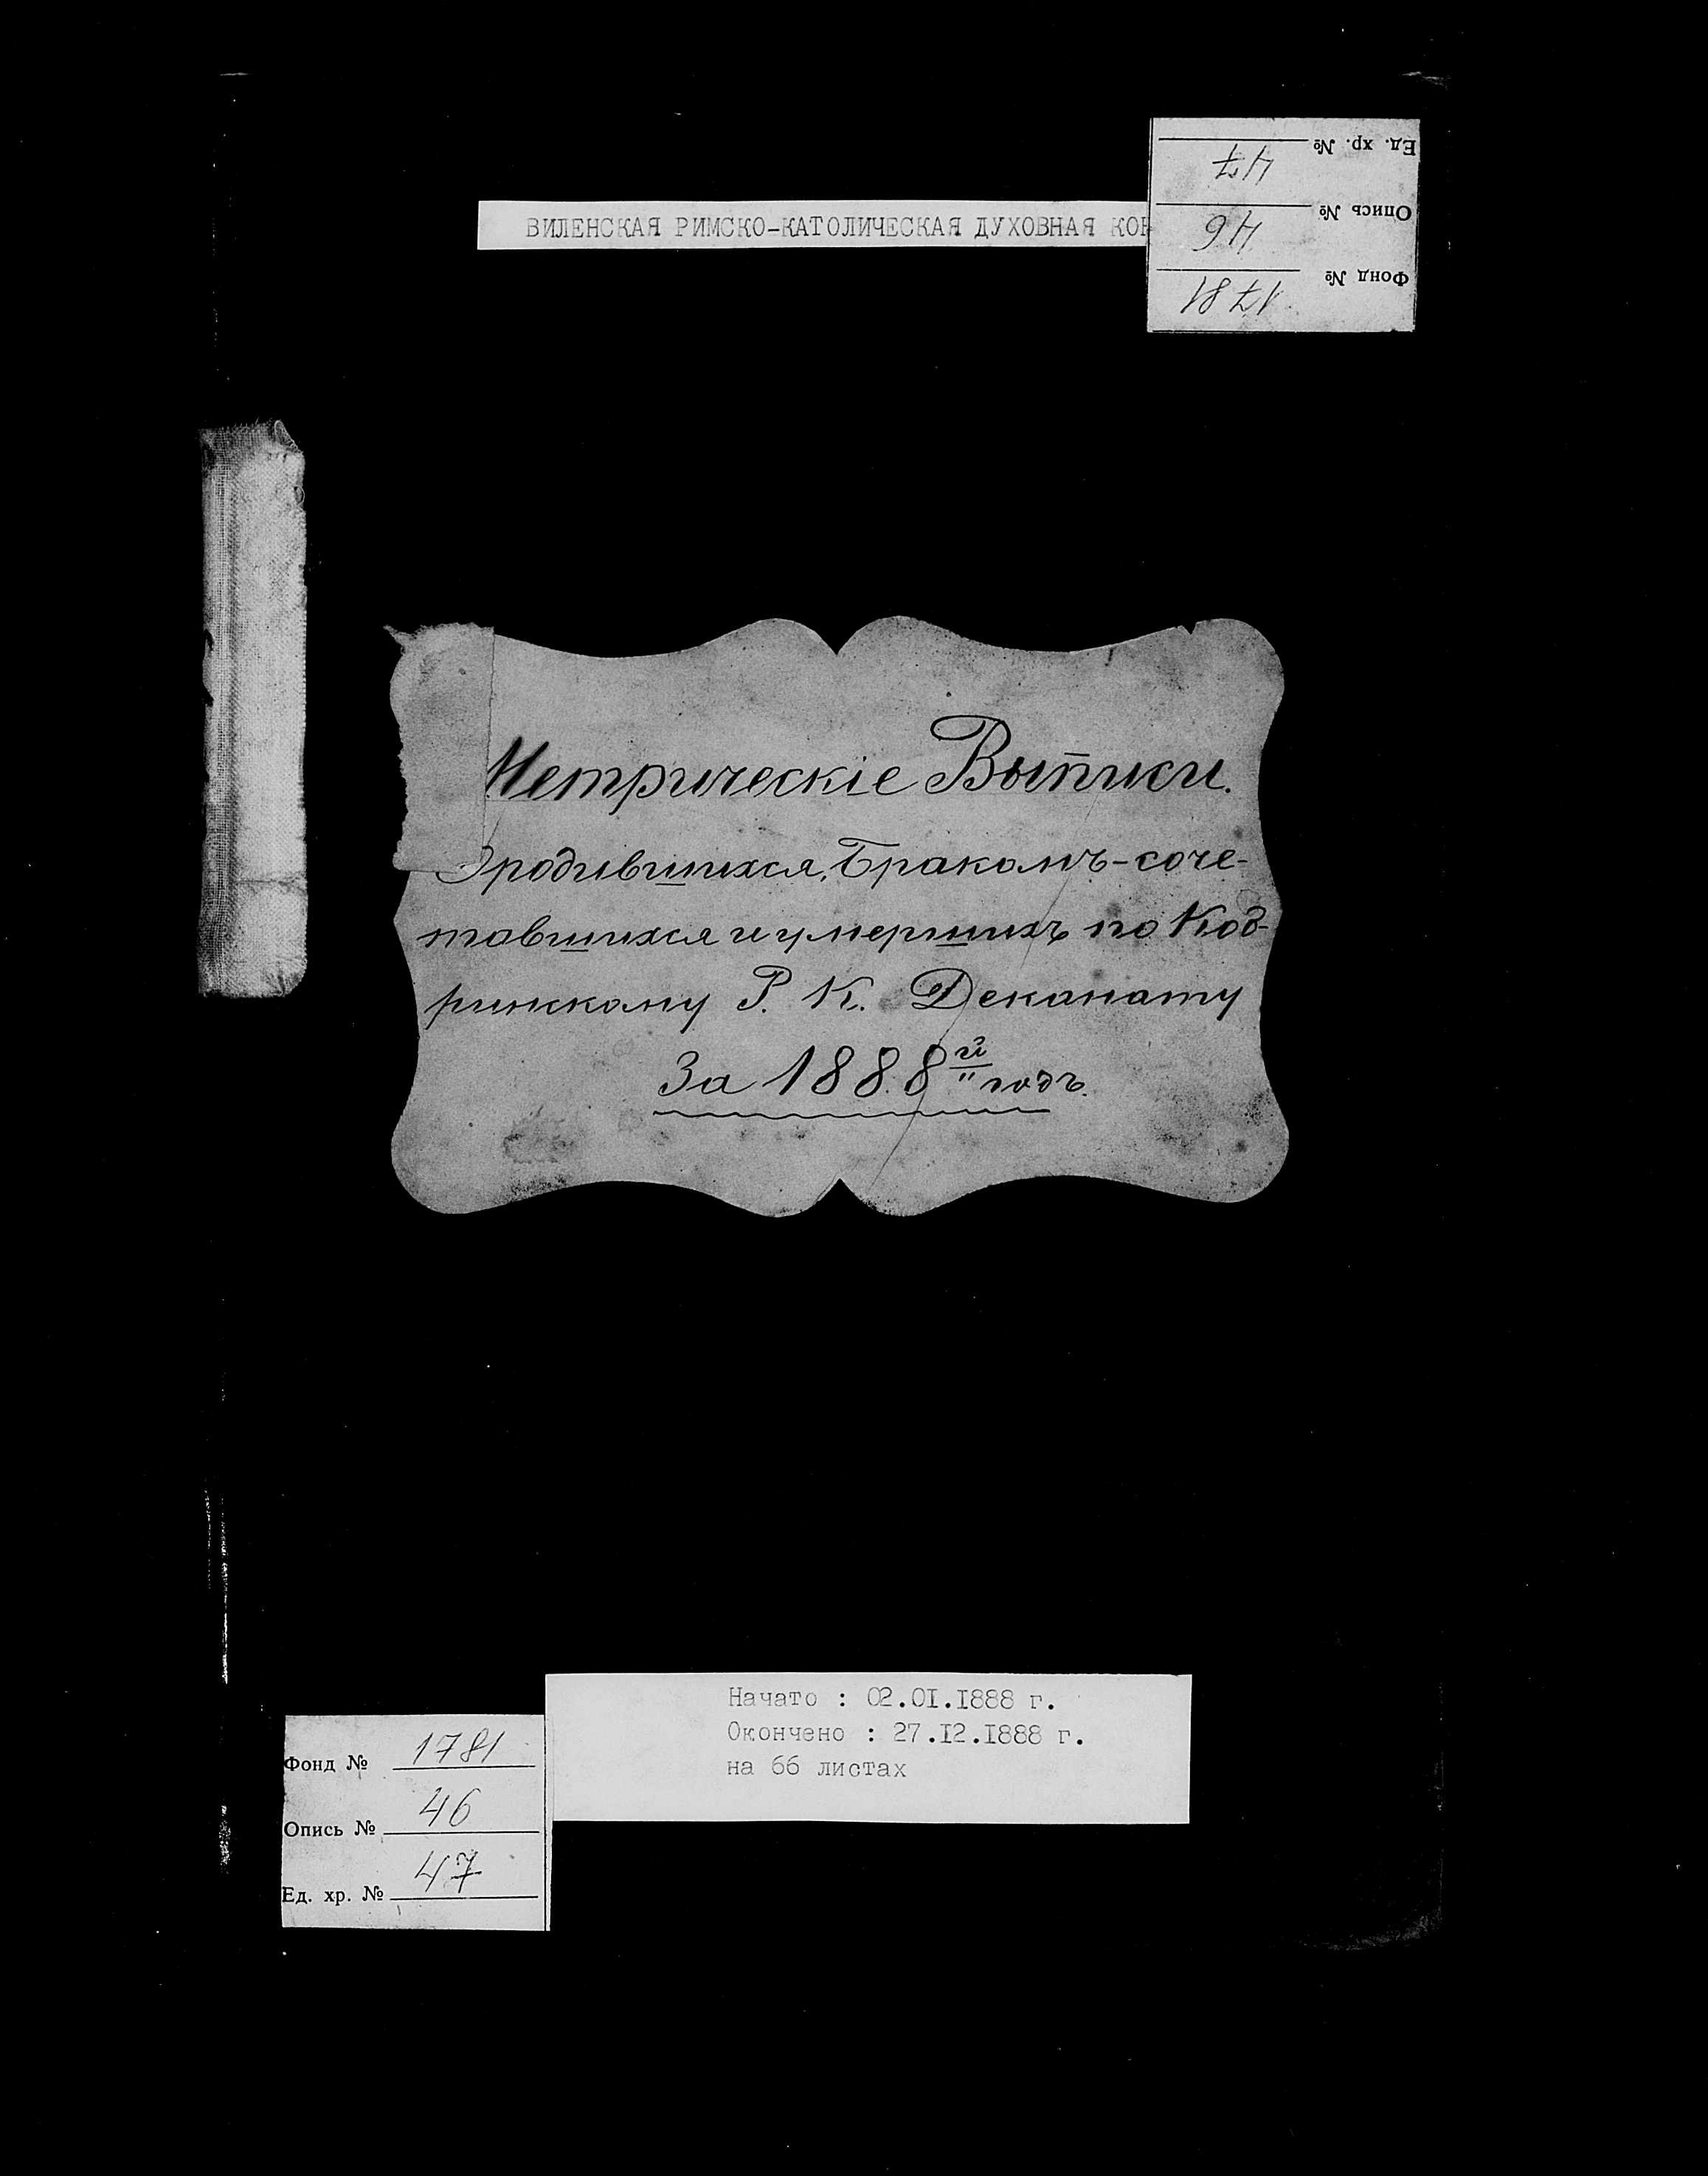 ВИЛЕНСКАЯ РИМСКО-КАТОЛИЧЕСКАЯ ДУХОВНАЯ КОН
Фонд № 1781
Опись № 46
Ед. хр. № 47
Метрическіе Выписи.
Ородившихся, Бракомъ-соче-
тавшихся и умершихъ по Коб-
ринскому Р. К. Деканату
За 1888й годъ.
Начато : 02.01.1888 г.
Окончено : 27.12.1888 г.
на 66 листах
Фонд № 1781
Опись № 46
Ед. хр. № 47